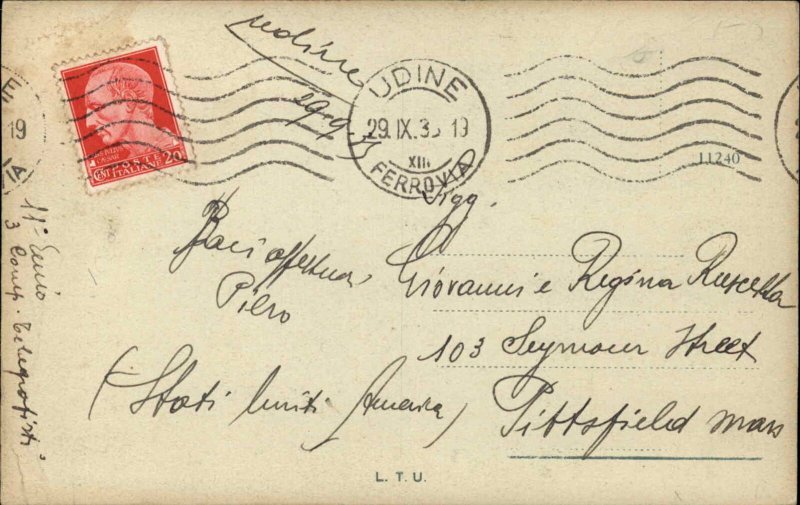 Udine
29-9-35
UDINE
29.IX.35 19
XIII
FERROVIA
CENT POSTE 20
ITALIANE
11240
Sigg.
Giovanni e Regina Ruscetta
103 Seymour Street
Pittsfield Mass
(Stati Uniti America)
Baci affettuosi
Piero
11° Genio
3 Comp. Telegrafisti
L. T. U.